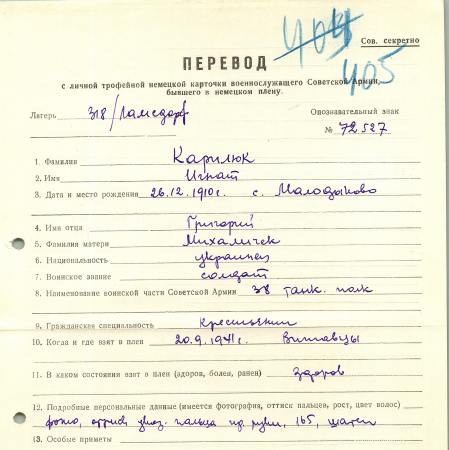 404
405
Сов. секретно
ПЕРЕВОД
с личной трофейной немецкой карточки военнослужащего Советской Армии,
бывшего в немецком плену.
Лагерь 318/Ламсдорф
Опознавательный знак
№ 72527
1. Фамилия Карилюк
2. Имя Игнат
3. Дата и место рождения 26.12.1910г. с. Малодыково
4. Имя отца Григорий
5. Фамилия матери Михаличек
6. Национальность украинец
7. Воинское звание солдат
8. Наименование воинской части Советской Армии 38 танк. полк
9. Гражданская специальность Крестьянин
10. Когда и где взят в плен 20.9.1941г.
11. В каком состоянии взят в плен (здоров, болен, ранен) Здоров
12. Подробные персональные данные (имеется фотография, оттиск пальцев, рост, цвет волос)
фото, оттиск указ. пальца пр. руки, 165, шатен
13. Особые приметы